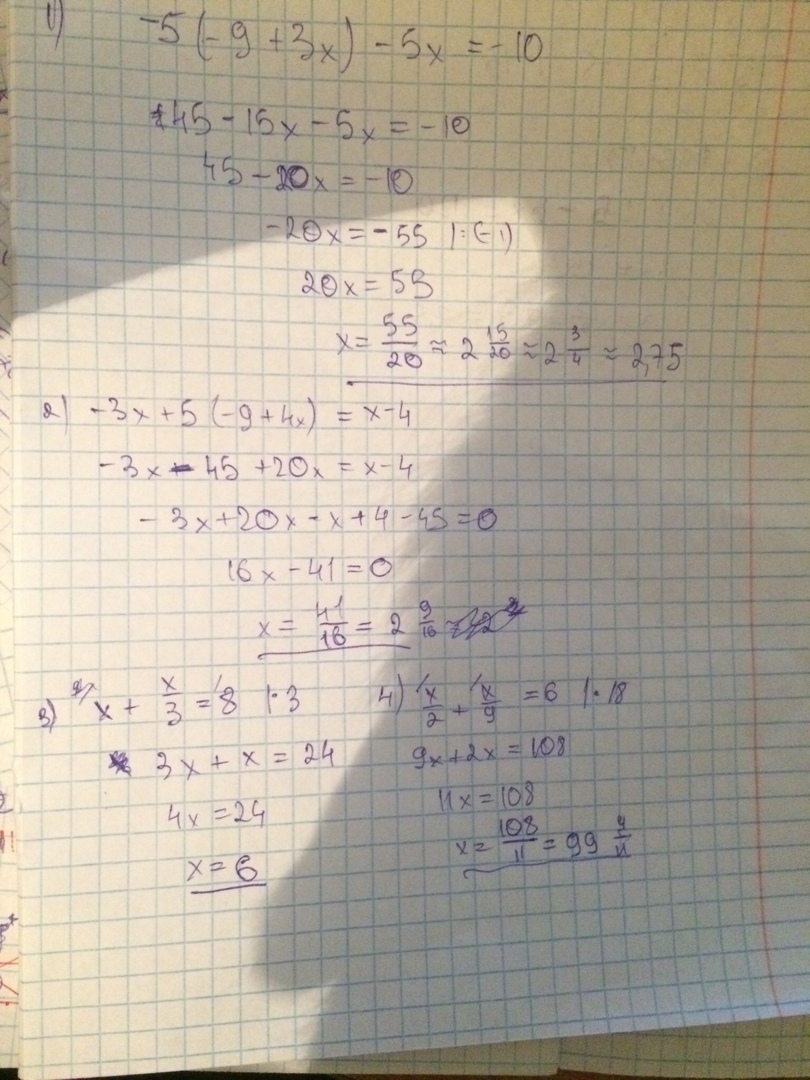 1) -5(-9+3x)-5x=-10
45-15x-5x=-10
45-20x=-10
-20x=-55 |:(-1)
20x=55
x=55/20≈2 15/20≈2 3/4≈2,75
2) -3x+5(-9+4x)=x-4
-3x-45+20x=x-4
-3x+20x-x+4-45=0
16x-41=0
x=41/16=2 9/16
3) x+x/3=8 |·3
3x+x=24
4x=24
x=6
4) x/2+x/9=6 |·18
9x+2x=108
11x=108
x=108/11=99 9/11